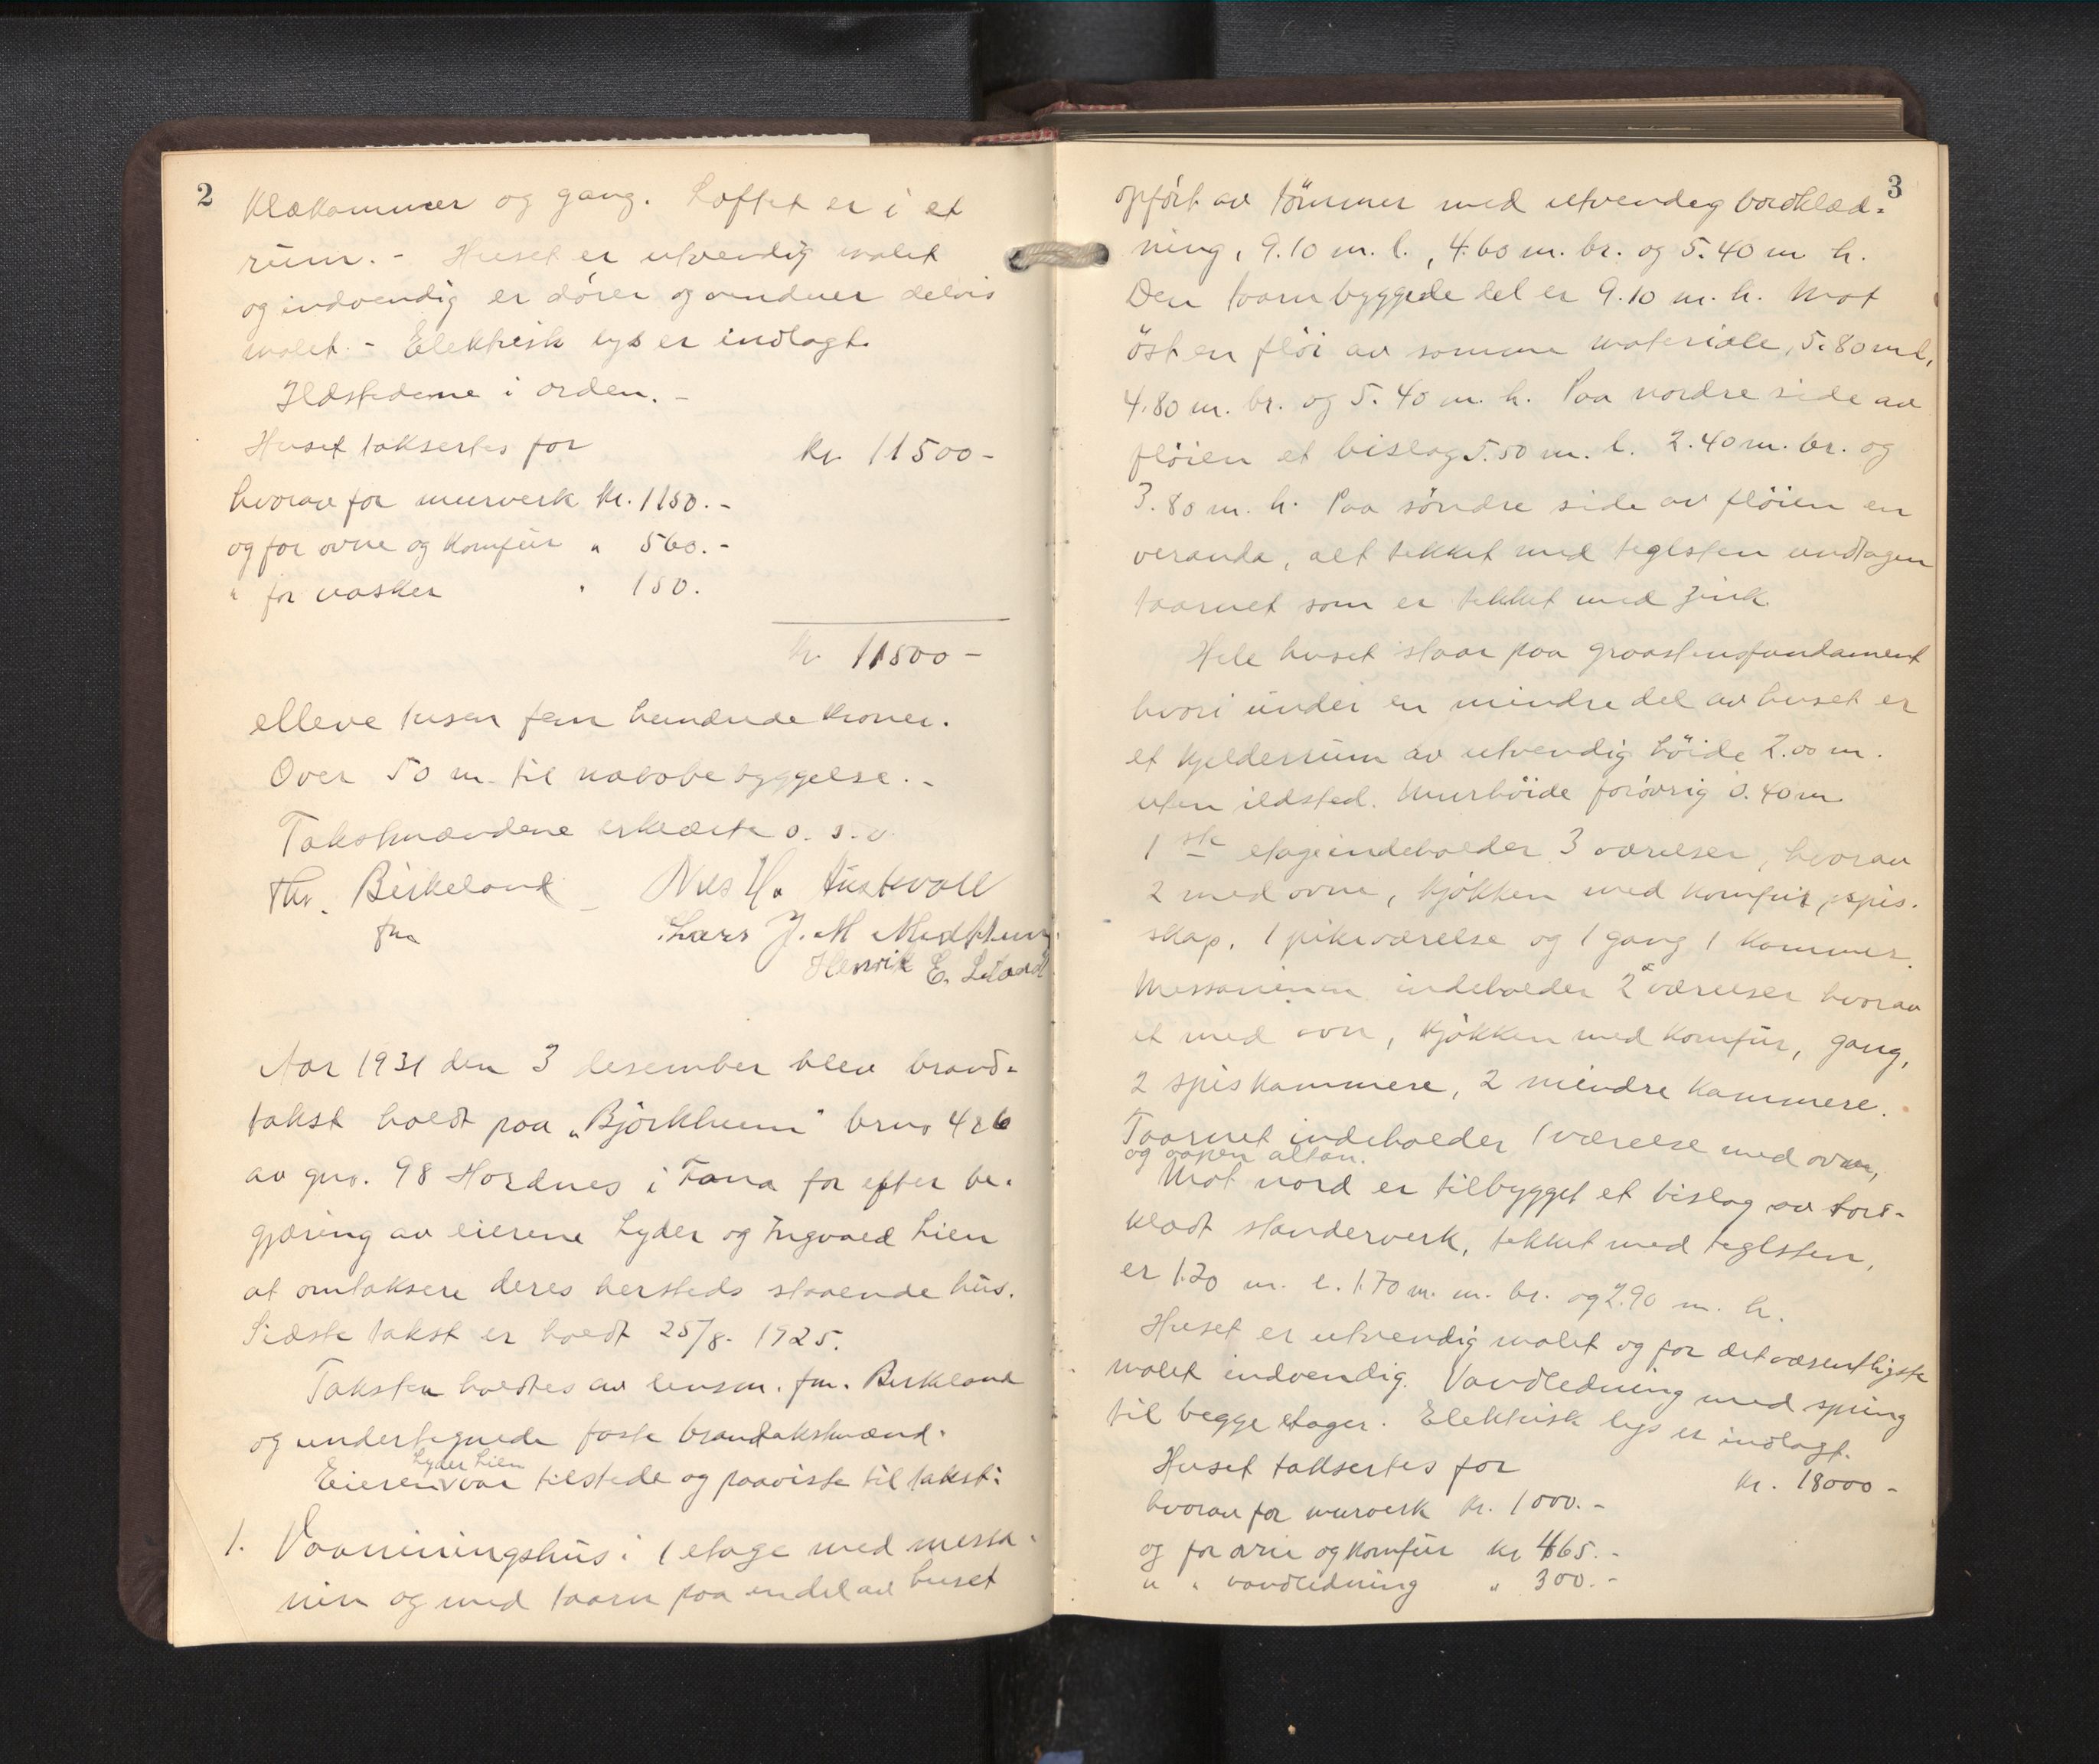 2
Klækammer og gang. Loftet er i et
rum. - Huset er utvendig malet
og indvendig er dører og vinduer delvis
malet. - Elektrisk lys er indlagt.
Ildstederne i orden. -
Huset taksertes for kr. 11500 -
hvorav for murverk kr. 1150. -
og for ovne og komfur " 560. -
" for vasker " 150.
kr. 11500 -
elleve tusen fem hundrede kroner.
Over 50 m. til nabobebyggelse. -
Takstmændene erklærte o. s. v.
Thv. Birkeland Nils H. Austevoll
fm Lars J. M.
Henrik E.
Aar 1931 den 3 desember blev brand-
takst holdt paa "Björkheim" brno 426
av gno. 98 Hordnes i Fana for efter be-
gjæring av eierene Lyder og Ingvald Lien
at omtaksere deres hersteds staaende hus.
Sidste takst er holdt 25/8. 1925.
Taksten holdtes av lensm. fm. Birkeland
og undertegnede faste brandtakstmænd.
Lyder Lien
Eieren var tilstede og paaviste til takst:
1. Vaaningshus i 1 etage med messa-
nin og med taarn paa endel av huset
3
opført av tömmer med utvendig bordklæd-
ning, 9.10 m. l., 4.60 m. br. og 5.40 m h.
Den taarnbyggede del er 9.10 m. h. Mot
öst en flöi av samme materiale, 5.80 m l,
4.80 m. br. og 5.40 m. h. Paa nordre side av
flöien et bislag 5.50 m. l. 2.40 m. br. og
3.80 m. h. Paa söndre side av flöien en
veranda, alt tekket med teglsten undtagen
taarnet som er tekket med zink.
Hele huset staar paa graastensfundament
hvori under en mindre del av huset er
et kjelderrum av utvendig höide 2.00 m.
uten ildsted. Murhöide forøvrig 0.40 m
1 ste etage indeholder 3 værelser, hvorav
2 med ovne, kjökken med komfur, spis-
skap, 1 pikeværelse og 1 gang 1 kammer.
Messaninen indeholder 2 værelser hvorav
et med ovn, kjökken med komfur, gang,
2 spiskammere, 2 mindre kammere.
Taarnet indeholder 1 værelse med ovn,
og aapen altan.
Mot nord er tilbygget et bislag av bord-
klædt standerverk, tekket med teglsten,
er 1.20 m. l. 1.70 m. m. br. og 2.90 m. h.
Huset er utvendig malet og for det væsentligste
malet indvendig. Vandledning med spring
til begge etager. Elektrisk lys er indlagt.
Huset taksertes for kr. 18000 -
hvorav for murverk kr. 1000. -
og for ovne og komfur kr 465. -
" " vandledning " 300. -